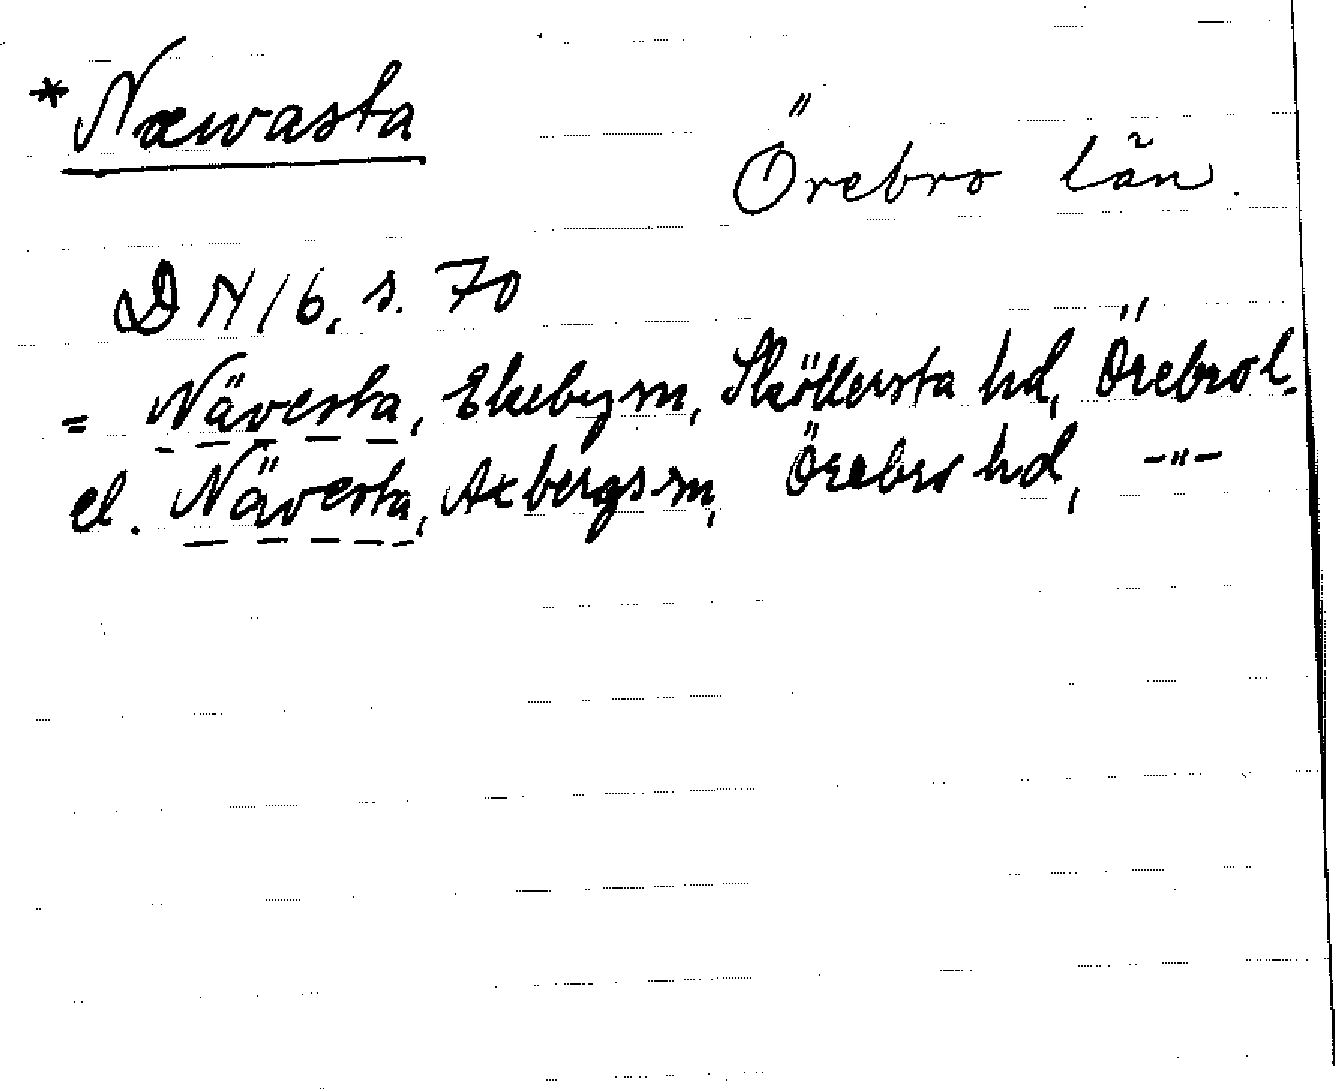 *Næwasta
Örebro län.
DN 16, s. 70
= Nävesta, Ekeby sn, Sköllersta hd, Örebro l.
el. Nävesta, Axbergs sn, Örebro hd, -"-